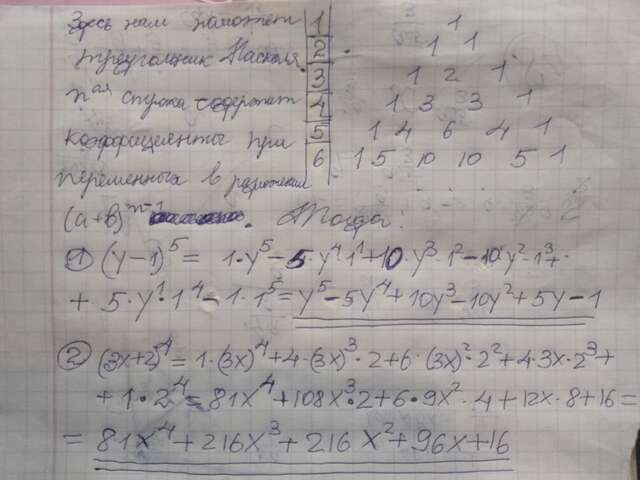 Здесь нам поможет 1 1
треугольник Паскаля. 2 1 1
nая строка содержит 3 1 2 1
коэффициенты при 4 1 3 3 1
переменных в разложении 5 1 4 6 4 1
(a+b)^n-1. Тогда: 6 1 5 10 10 5 1
① (y-1)^5 = 1·y^5-5·y^4·1^1+10·y^3·1^2-10·y^2·1^3+
+ 5·y^1·1^4-1·1^5= y^5-5y^4+10y^3-10y^2+5y-1
② (3x+2)^4=1·(3x)^4+4·(3x)^3·2+6·(3x)^2·2^2+4·3x·2^3+
+1·2^4=81x^4+108x^3·2+6·9x^2·4+12x·8+16=
= 81x^4+216x^3+216x^2+96x+16